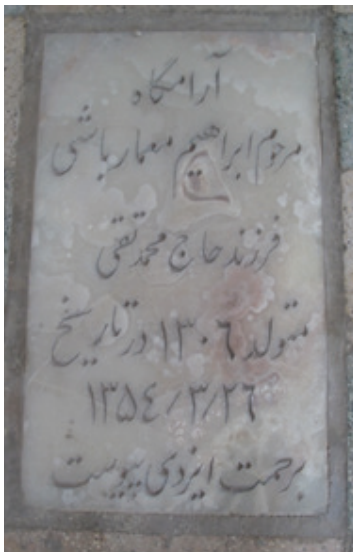 آرامگاه
مرحوم ابراهیم معمارباشی
فرزند حاج محمدتقی
متولد ۱۳۰۶ در تاریخ
۱۳۵٤/۳/۲٦
برحمت ایزدی پیوست